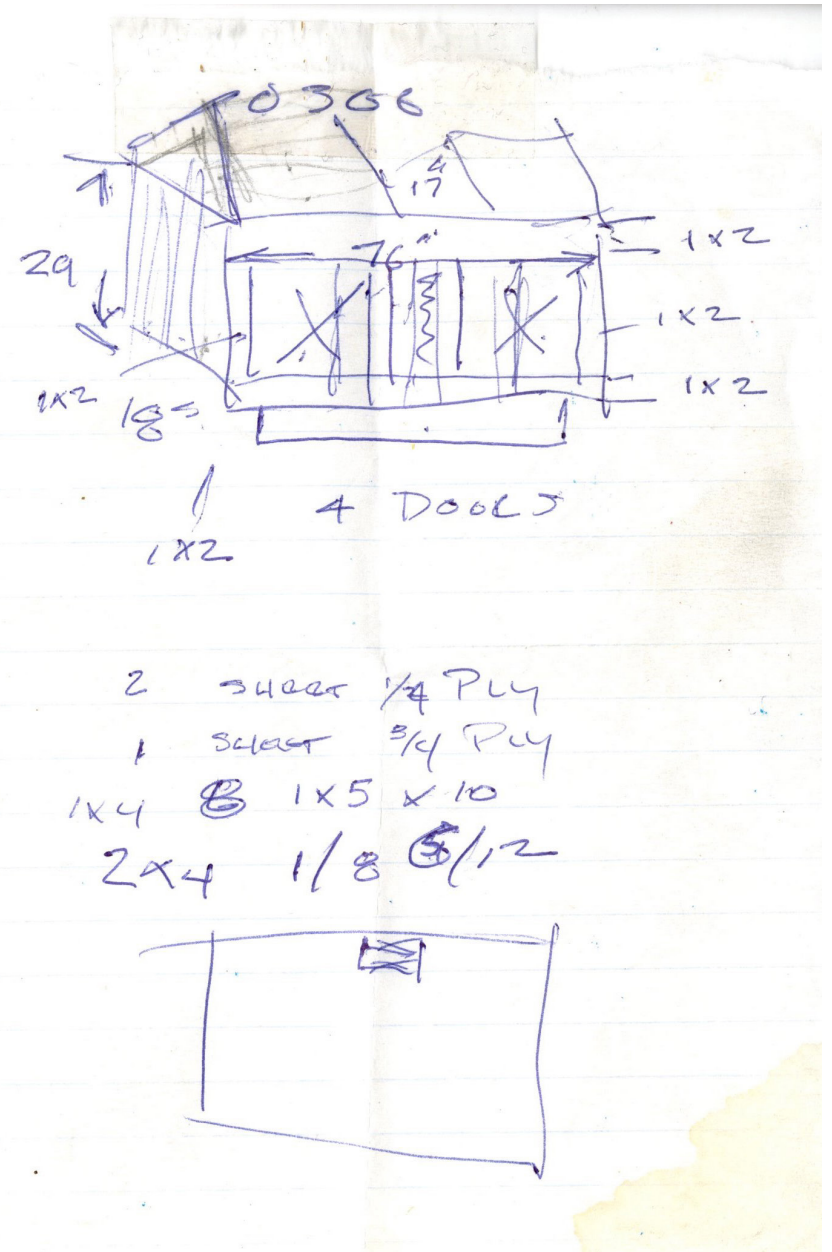 0366
17
29
76"
1x2
1x2
1x2
1x2
18
4 DOORS
1x2
2 SHEET 1/4 PLY
1 SHEET 3/4 PLY
1x4 8 1x5 x 10
2x4 1/8 /12